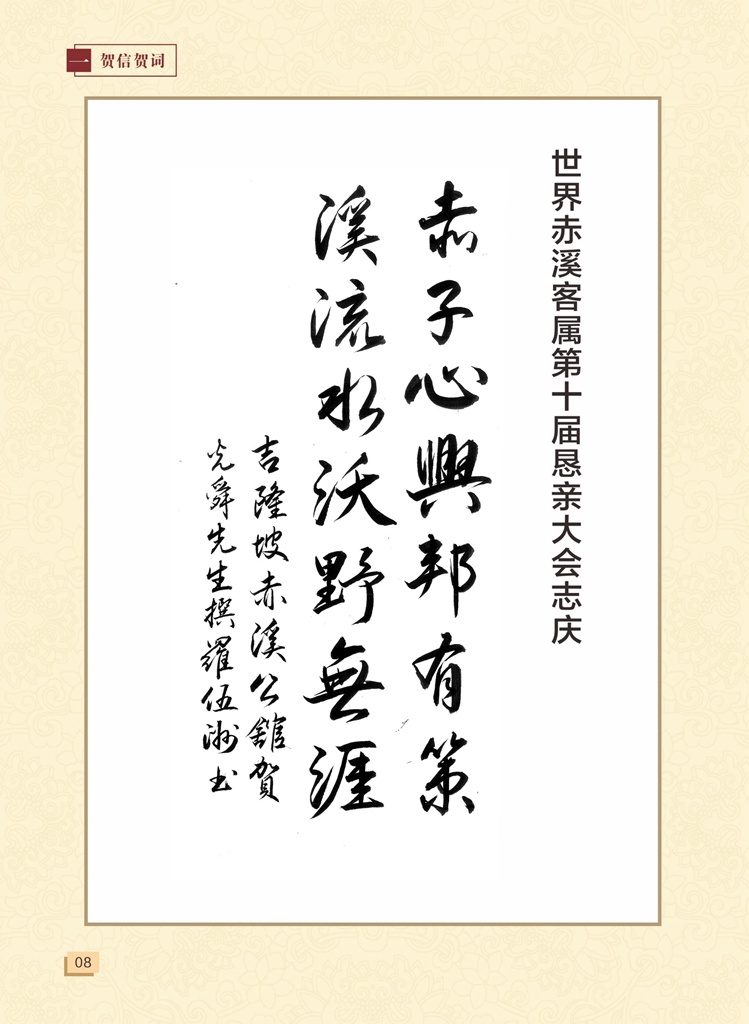 一 贺信贺词
世界赤溪客属第十届恳亲大会志庆
赤子心興邦有策
溪流水沃野無涯
吉隆坡赤溪公館賀
光舜先生撰羅伍洲书
08